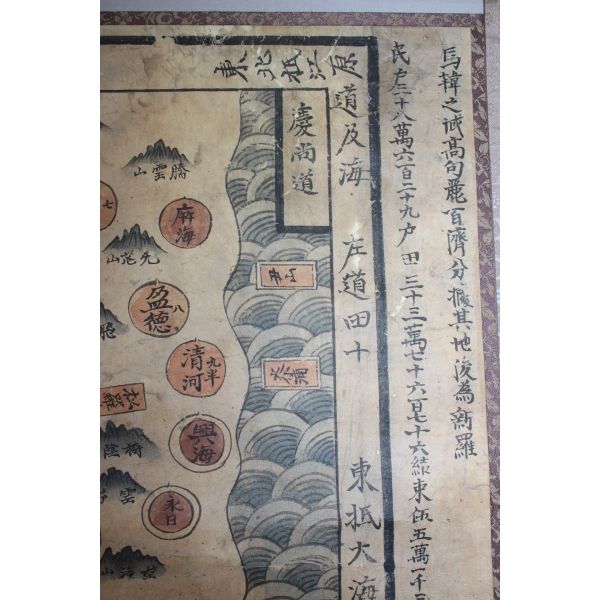 馬韓之域高句麗百濟分據其地後為新羅
民戶二十八萬六百二十九户田三十三萬七十六百七十六結東伍五萬一千三
東北抵江原
道及海
左道田十
東抵大海
慶尚道
騰雲山
七
寧海
盈德
八
清河
九半
松羅
興海
永日
雲